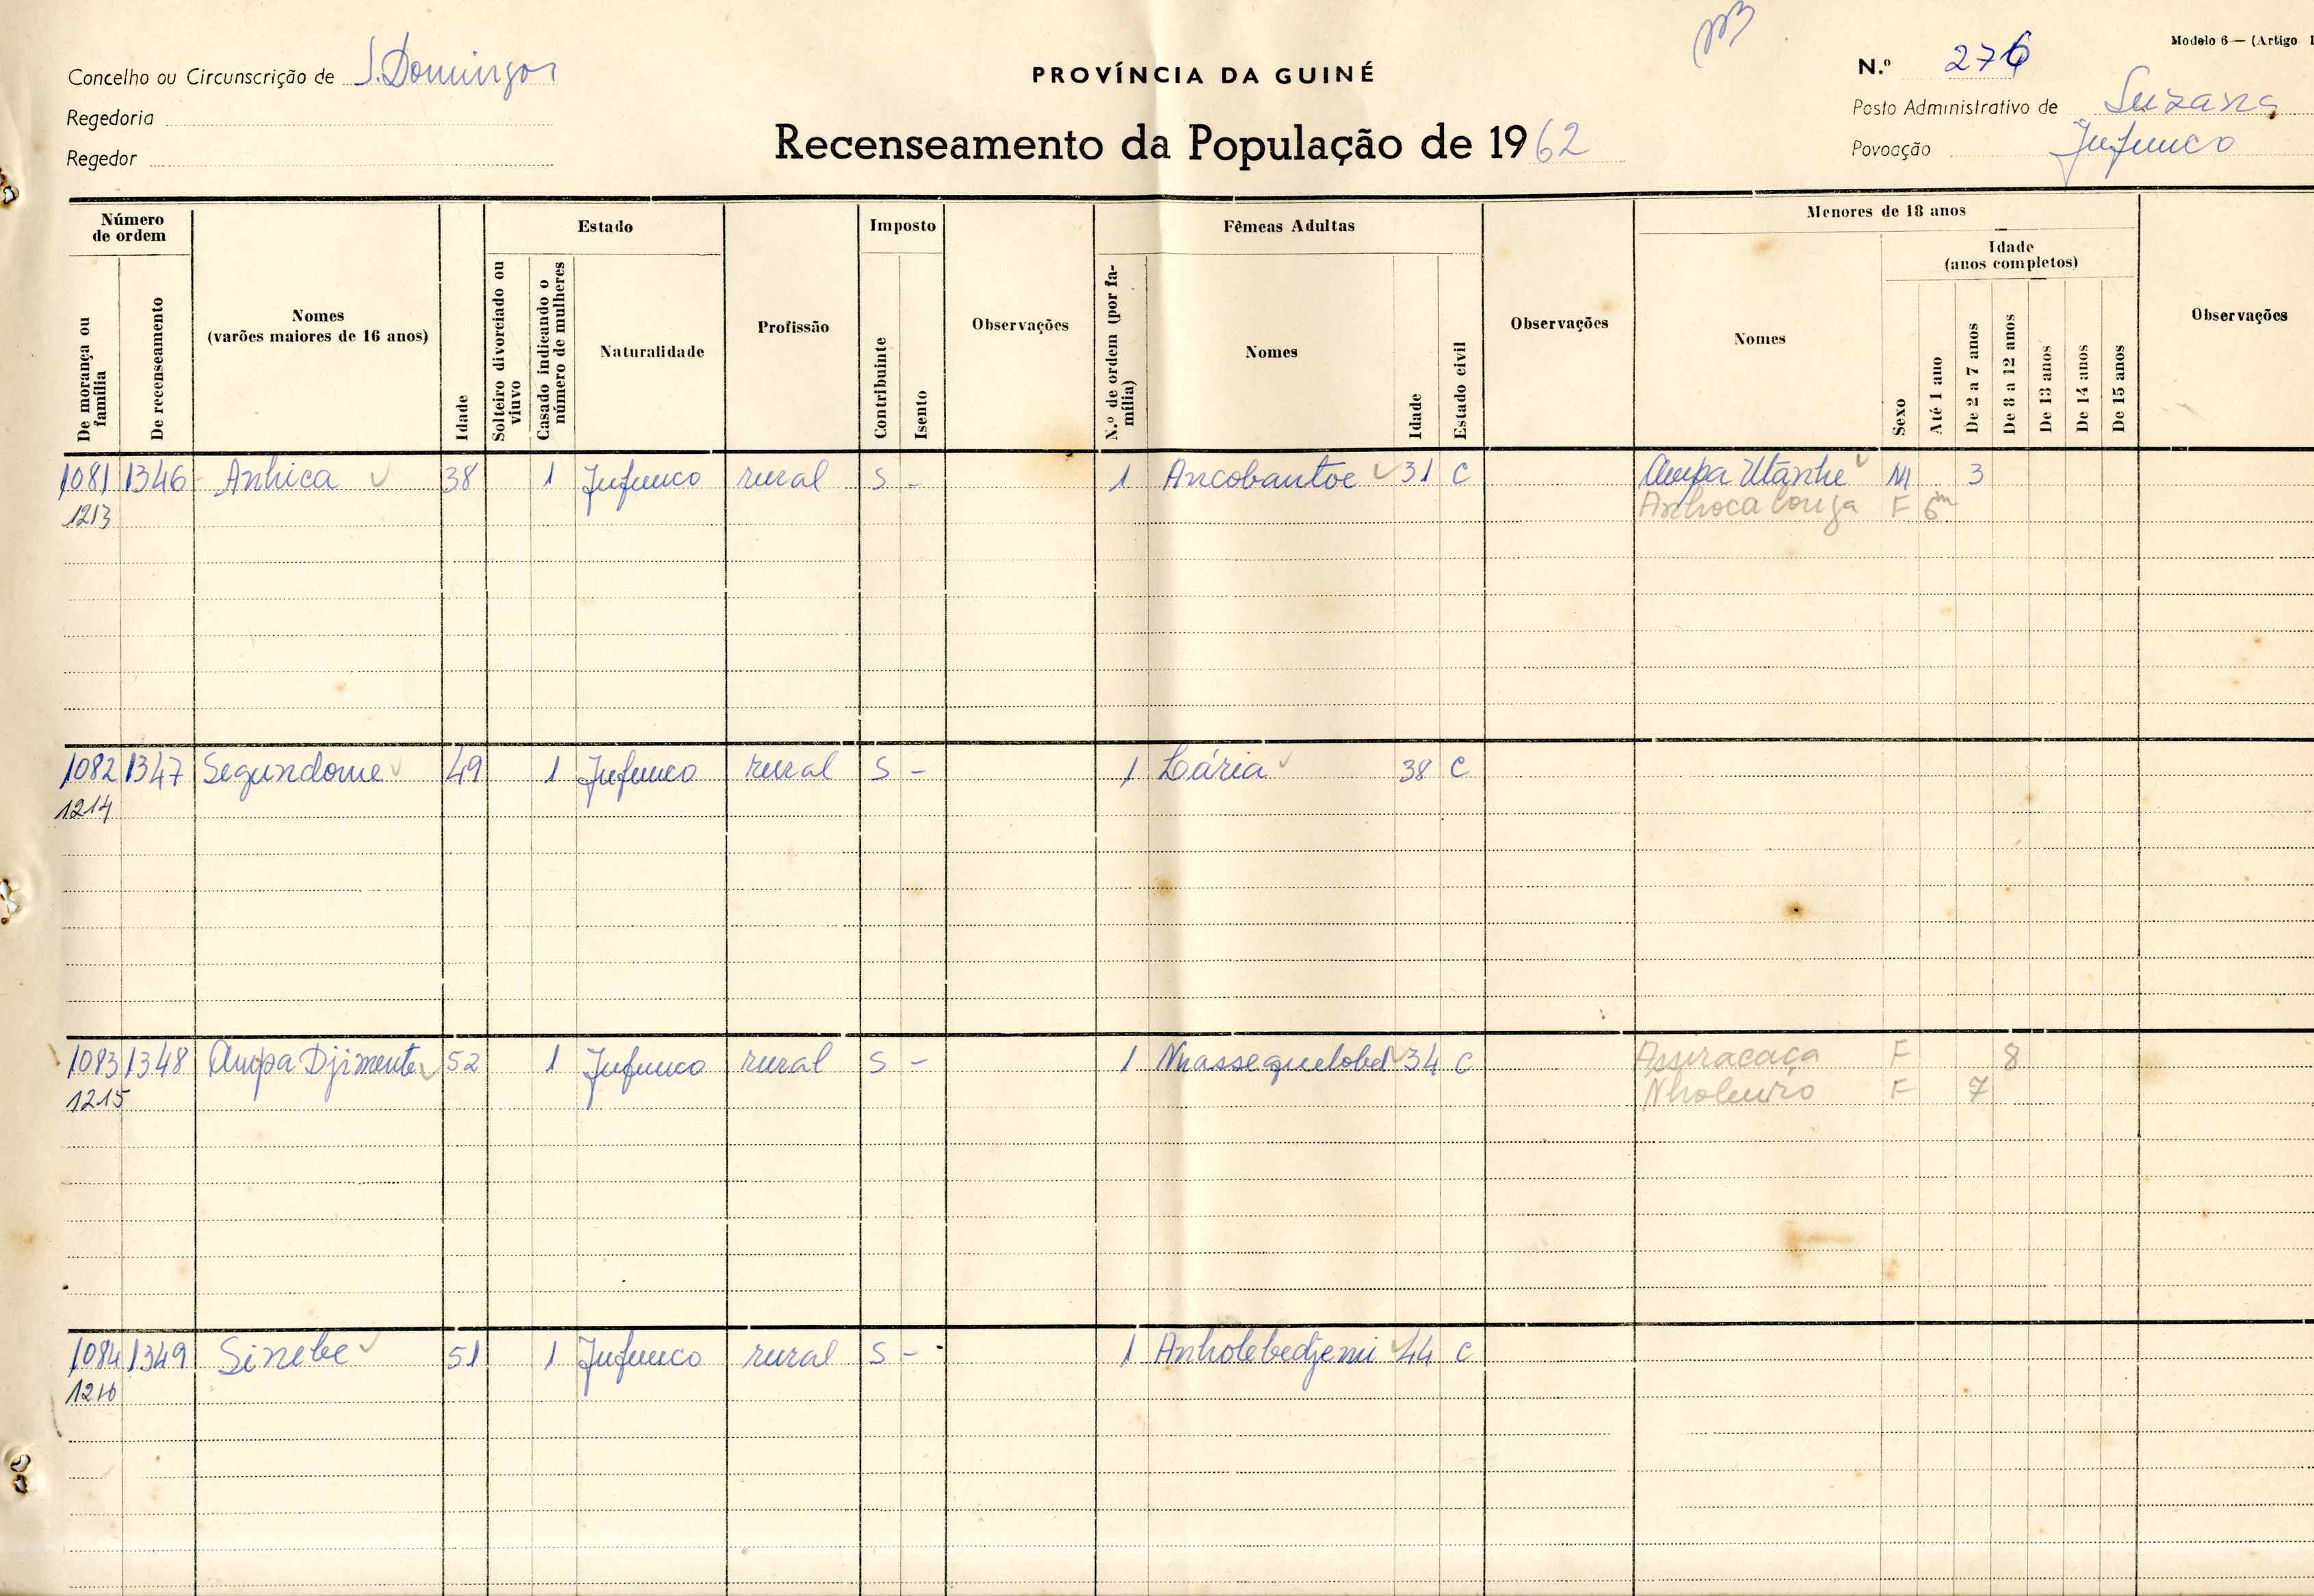 Modelo 6 — (Artigo
Concelho ou Circunscrição de S. Domingos
PROVÍNCIA DA GUINÉ
N.º 276
Regedoria
Posto Administrativo de Suzana
Regedor
Recenseamento da População de 1962
Povoação Jufunco
Número de ordem
De morança ou família
De recenseamento
Nomes
(varões maiores de 16 anos)
Idade
Estado
Solteiro divorciado ou viuvo
Casado indicando o número de mulheres
Naturalidade
Profissão
Imposto
Contribuinte
Isento
Observações
Fêmeas Adultas
N.º de ordem (por família)
Nomes
Idade
Estado civil
Observações
Menores de 18 anos
Nomes
Sexo
Idade
(anos completos)
Até 1 ano
De 2 a 7 anos
De 8 a 12 anos
De 13 anos
De 14 anos
De 15 anos
Observações
1081 1346 Anhica 38 1 Jufunco rural S - 1 Ancobantoe 31 C Ampa Utanhe M 3
1213 Anhoca louga F 6m
1082 1347 Segundome 49 1 Jufunco rural S - 1 Lária 38 C
1214
1083 1348 Ampa Djimente 52 1 Jufunco rural S - 1 Nhassequelobel 34 C Assuracaça F 8
1215 F 7
1084 1349 Sinebe 51 1 Jufunco rural S - 1 Anholebedjemi 44 C
1216